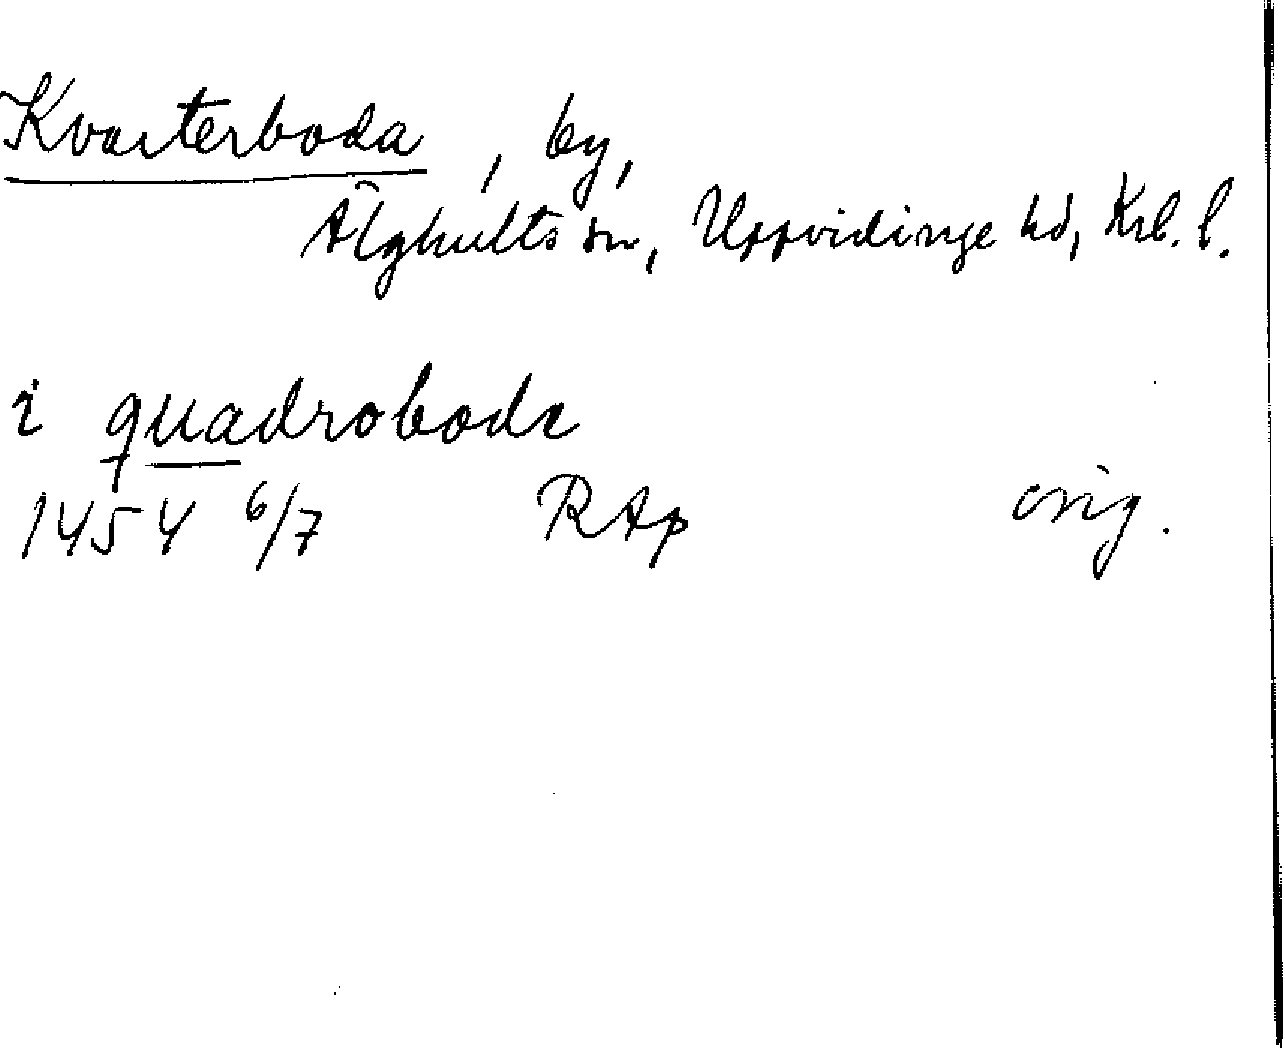 Kvarterboda, by,
Älghults sn, Uppvidinge hd, Krb. l.
i quadrobode
1454 6/7 RAp orig.